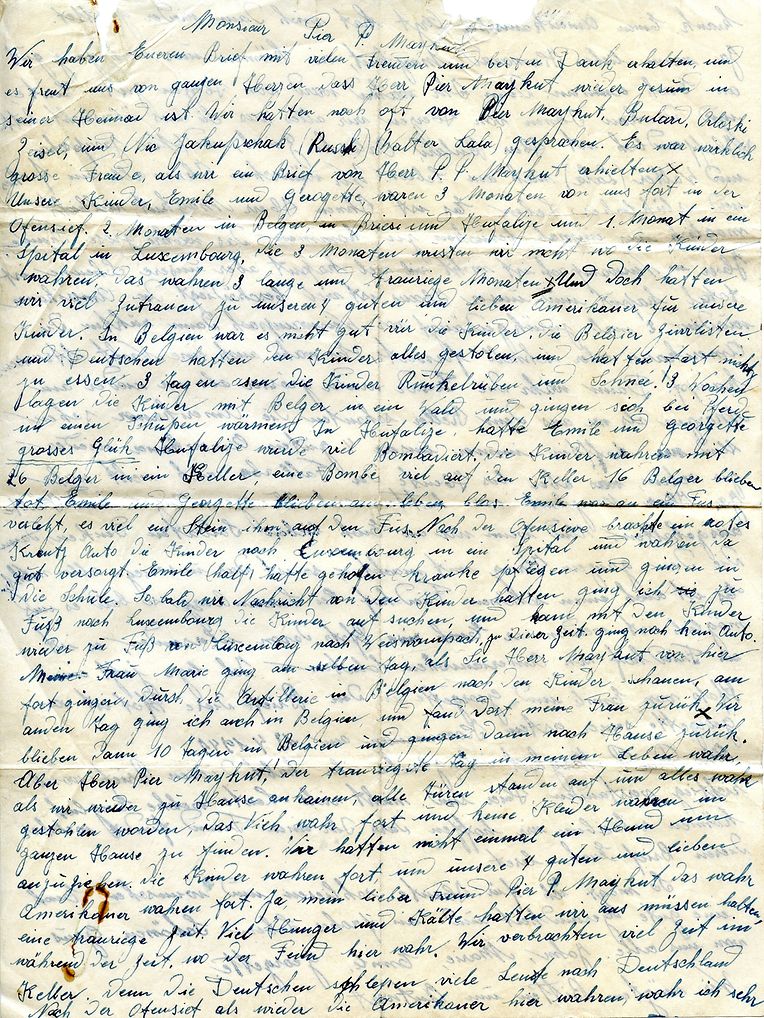 Monsieur Pier P. Maykut
Wir haben Eueren Brief mit vielen Freuden und besten Dank erhalten, und
es freut uns von ganzen Herzen dass Herr Pier Maykut wieder gesund in
seiner Heimad ist. Wir hatten noch oft von Pier Maykut, Pulari, Orloski
Zeisel, und Nic Jakupschak (Russki) (halter Lala) gesprochen. Es war wirklich
grosse Freude, als wir ein Brief von Herr P. P. Maykut erhielten, x
Unsere Kinder, Emile und Gerogette, waren 3 Monaten von uns fort in der
Ofensief. 2 Monaten in Belgen, in Brisi und Hufalige und 1. Monat in ein
Spital in Luxembourg, Die 3 Monaten wusten wir nicht wo die Kinder
wahren, das wahren 3 lange und trauriege Monaten x Und Doch hatten
wir viel Zutrauen zu unseren 4 guten und lieben Amerikaner für unsere
Kinder. In Belgien war es nicht gut für die Kinder, die Belgier Zivilisten
und Deutschen hatten den Kinder alles gestolen, und hatten fast nichts
zu essen 3 Tagen asen die Kinder Runkelrüben und Schnee! 3 Wochen
lagen die Kinder mit Belger in ein Wald und gingen sech bei Pferd
in einen Schupen wärmen. In Hufalige, hatte Emile und georgette
grosses Glük Hufalige wurde viel Bombardiert. die Kinder wahren mit
26 Belger in ein Keller, eine Bombe viel auf den Keller 16 Belger blieben
tot, Emile und Georgette blieben am leben, blos Emile war an ein Fus
verletzt, es viel ein Stein ihm auf den Fus. Nach der Ofensieve brachte ein rotes
Kreutz Auto die Kinder nach Luxembourg in ein Spital und wahren da
gut versorgt. Emile (half) hatte geholfen kranke pflegen und gingen in
die Schule. So bald wir Nachricht von den Kinder hatten ging ich zu
Fuß nach Luxembourg die Kinder auf suchen, und kam mit den Kinder
wieder zu Fuß von Luxembog nach Weiswampach, zu dieser Zeit ging noch kein Auto.
Meine Frau Marie ging am selben Tag, als Sie Herr Maykut von hier
fort gingen, durch die Artillerie in Belgien nach den Kinder schauen, am
anden Tag ging ich auch in Belgien und fand Dort meine Frau zurük x Wir
blieben Dann 10 Tagen in Belgien und gingen dann nach Hause zurük.
Aber Herr Pier Maykut! Der trauriegste Tag in meinem Leben wahr,
als wir wieder zu Hause ankamen, alle Türen standen auf und alles wahr
gestohlen worden, das Vieh wahr fort und keine Kleider wahren im
ganzen Hause zu finden. Wir hatten nicht einmal ein Hemd um
anzuziehen. die Kinder wahren fort und unsere 4 guten und lieben
Amerikaner wahren fort. Ja mein lieber Freund Pier P. Maykut das wahr
eine trauriege Zeit Viel Hunger und Kälte hatten wir aus müssen halten,
während der Zeit, wo der Feind hier wahr. Wir verbrachten viel Zeit im
Keller, Denn die Deutschen schlepten viele Leute nach Deutschland
Nach der Ofensief als wieder die Amerikaner hier wahren, wahr ich sehr